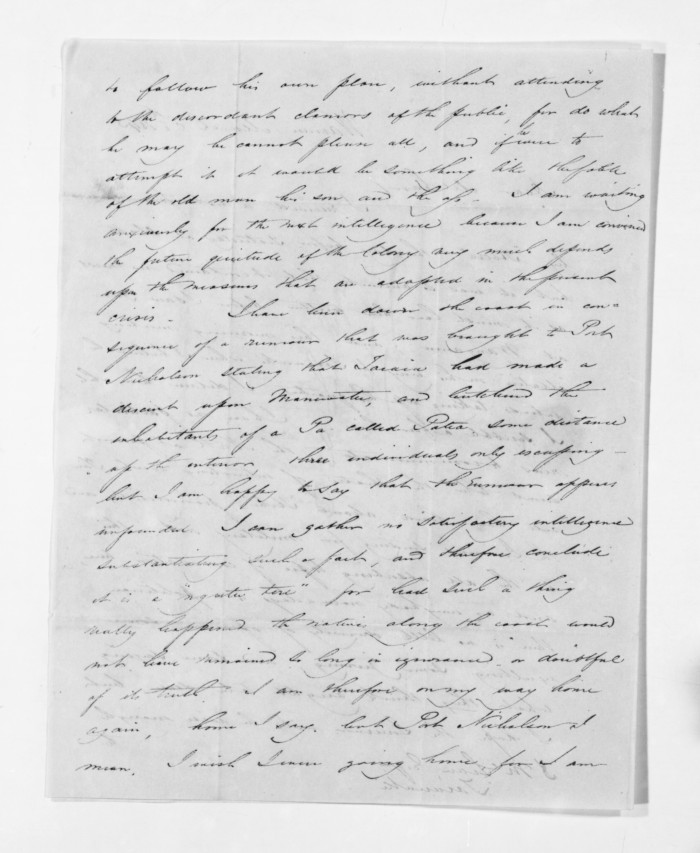 to follow his own plan, without attending
to the discordant clamors of the public, for do what
he may he cannot please all, and if he were to
attempt it it would be something like the fable
of the old man his son and the ass. I am waiting
anxiously for the next intelligence because I am convinced
the future quietude of the Colony very much depends
upon the measures that are adopted in the present
crisis - I have been down the coast in con=
sequence of a rumour that was brought to Port
Nicholson stating that Taraia had made a
descent upon Manawatu, and butchered the
inhabitants of a Pa called Patea some distance
up the interior, three individuals only escaping -
but I am happy to say that the rumour appears
unfounded. I can gather no satisfactory intelligence
substantiating such a fact, and therefore conclude
it is a "ngutu tere" for had such a thing
really happened the natives along the coast would
not have remained so long in ignorance or doubtful
of its truth. I am therefore on my way home
again, home I say, but Port Nicholson I
mean. I wish I were going home for I am